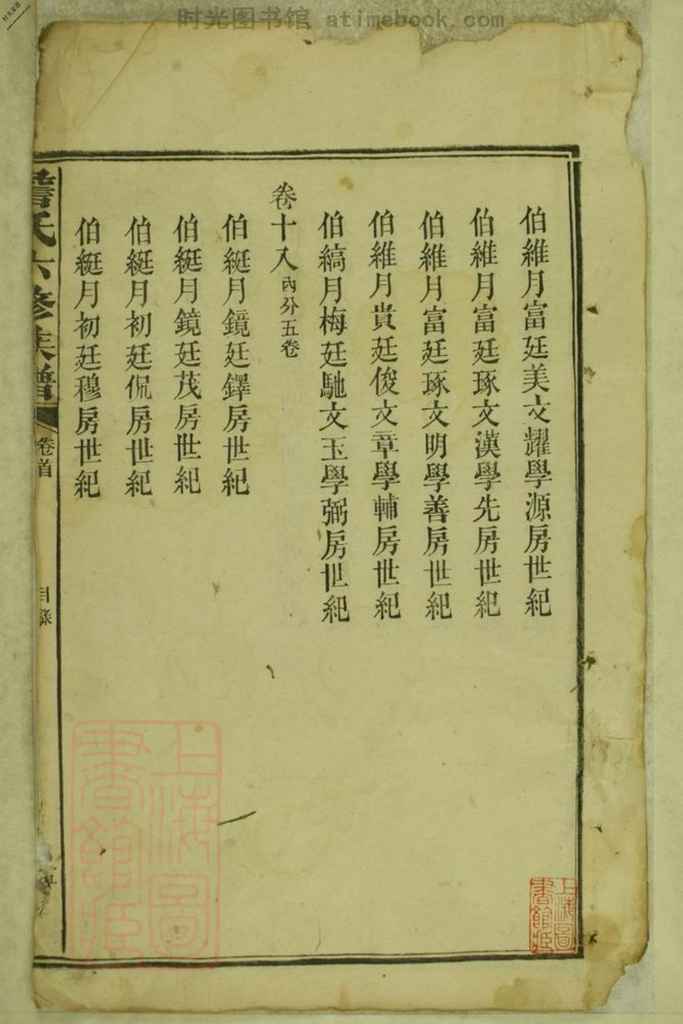 时光图书馆 atimebook.com
伯維月富廷美文耀學源房世紀
伯維月富廷琢文漢學先房世紀
伯維月富廷琢文明學善房世紀
伯維月貴廷俊文章學輔房世紀
伯縞月梅廷馳文玉學弼房世紀
卷十八 內外五卷
伯綎月鏡廷鐸房世紀
伯綎月鏡廷茂房世紀
伯綎月初廷侃房世紀
伯綎月初廷穆房世紀
氏六修族譜 卷首 目錄
上海圖書館藏
上海圖書館藏